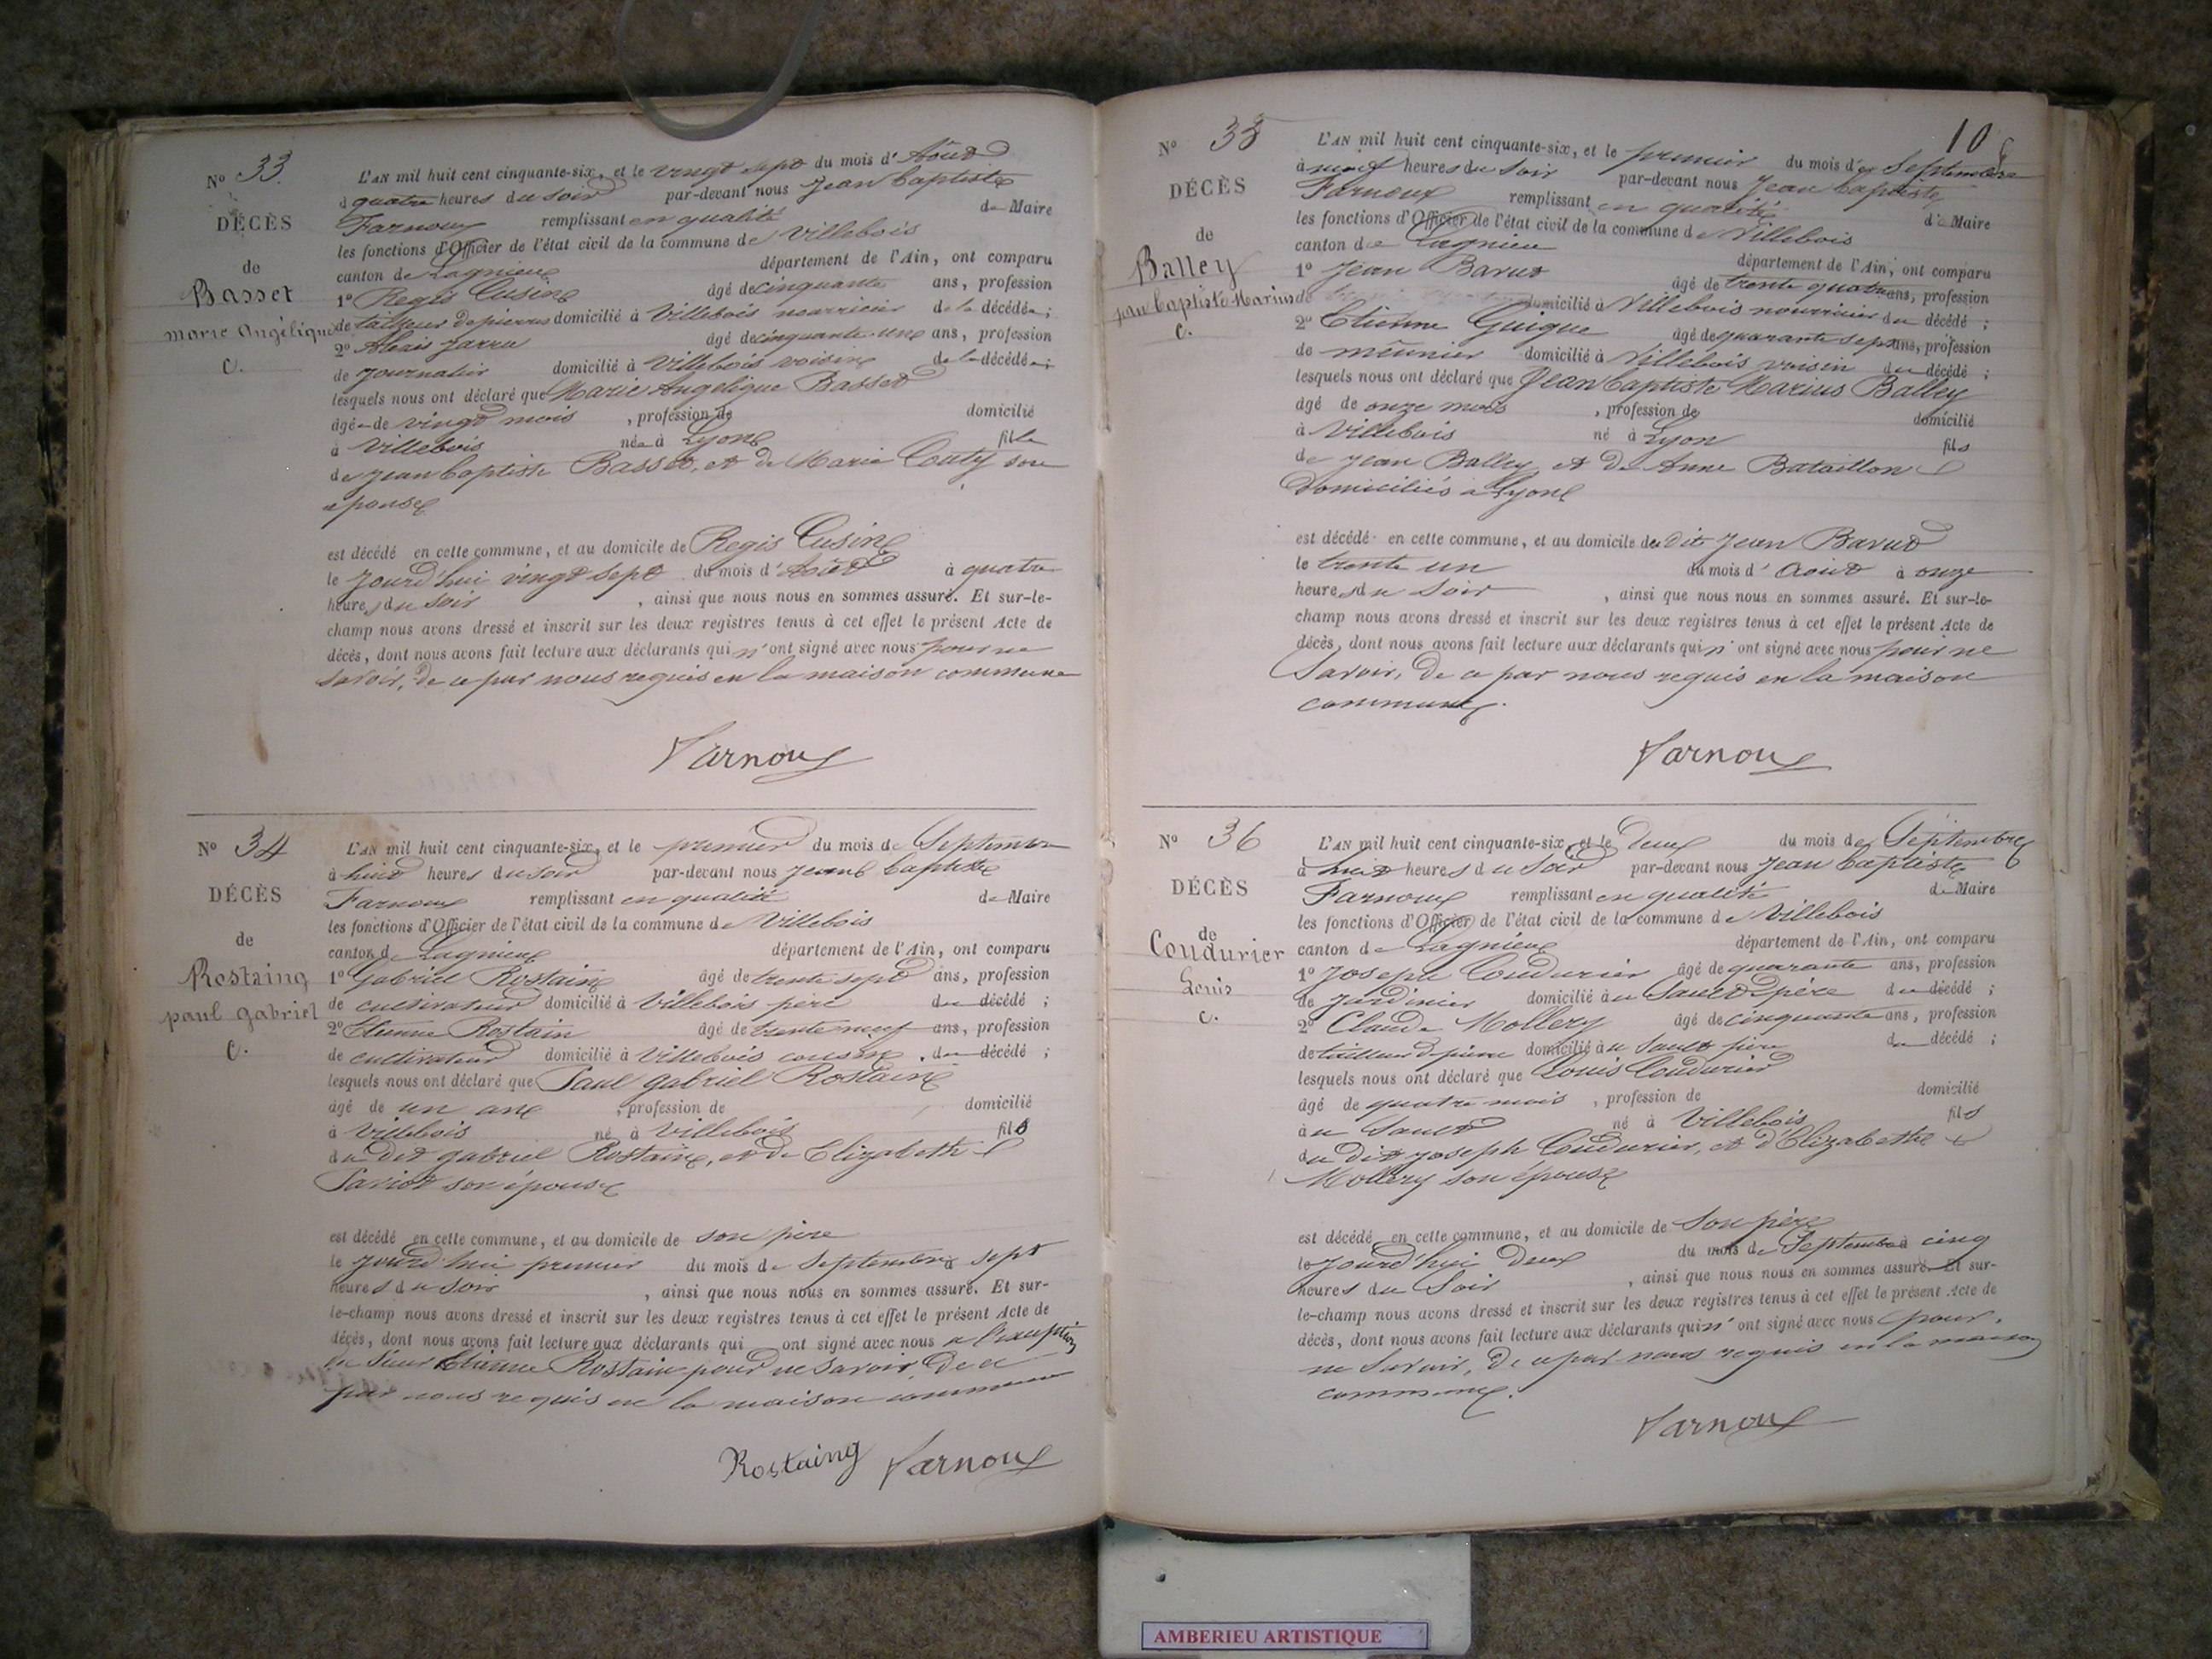 N° 33.
DÉCÈS
de
Basset
marie Angélique
C.
L'AN mil huit cent cinquante-six, et le vingt sept du mois d'Août
à quatre heures du soir par-devant nous Jean Baptiste
Farnoux remplissant en qualité de Maire
les fonctions d'Officier de l'état civil de la commune de Villebois
canton de Lagnieu département de l'Ain, ont comparu
1° Regis Cusin âgé de cinquante ans, profession
de tailleur de pierres domicilié à Villebois nourricier de la décédée;
2° Alexis Jarru âgé de cinquante-une ans, profession
de journalier domicilié à Villebois voisin de la décédée;
lesquels nous ont déclaré que Marie Angelique Basset
âgée de vingt mois , profession de domicilié
à Villebois née à Lyon fille
de Jean Baptiste Basset, et de Marie Couty son
epouse
est décédé en cette commune, et au domicile de Regis Cusin
le jourd'hui vingt sept du mois d'Août à quatre
heures du soir , ainsi que nous nous en sommes assuré. Et sur-le-
champ nous avons dressé et inscrit sur les deux registres tenus à cet effet le présent Acte de
décès, dont nous avons fait lecture aux déclarants qui n'ont signé avec nous pour ne
savoir, de ce par nous requis en la maison commune
Farnoux
N° 34
DÉCÈS
de
Rostaing
paul gabriel
C.
L'AN mil huit cent cinquante-six, et le premier du mois de Septembre
à huit heures du soir par-devant nous Jean Baptiste
Farnoux remplissant en qualité de Maire
les fonctions d'Officier de l'état civil de la commune de Villebois
canton de Lagnieu département de l'Ain, ont comparu
1° Gabriel Rostain âgé de trente sept ans, profession
de cultivateur domicilié à Villebois père du décédé;
2° Etienne Rostain âgé de trente neuf ans, profession
de cultivateur domicilié à Villebois cousin, du décédé;
lesquels nous ont déclaré que Paul gabriel Rostain
âgé de un an , profession de domicilié
à Villebois né à Villebois fils
du dit gabriel Rostain, et de Elizabeth
Saviot son épouse
est décédé en cette commune, et au domicile de son père
le jourd'hui premier du mois de Septembre à sept
heures du soir , ainsi que nous nous en sommes assuré. Et sur-
le-champ nous avons dressé et inscrit sur les deux registres tenus à cet effet le présent Acte de
décès, dont nous avons fait lecture aux déclarants qui ont signé avec nous a l'exception
du Sieur Etienne Rostain pour ne savoir, de ce
par nous requis en la maison commune
Rostaing Farnoux
10
N° 35
DÉCÈS
de
Balley
jean baptiste Marius
C.
L'AN mil huit cent cinquante-six, et le premier du mois de Septembre
à neuf heures du soir par-devant nous Jean baptiste
Farnoux remplissant en qualité de Maire
les fonctions d'Officier de l'état civil de la commune de Villebois
canton de Lagnieu département de l'Ain, ont comparu
1° Jean Bavut âgé de trente quatre ans, profession
de domicilié à Villebois nourricier du décédé;
2° Etienne Guigue âgé de quarante sept ans, profession
de meûnier domicilié à Villebois voisin du décédé;
lesquels nous ont déclaré que Jean baptiste Marius Balley
âgé de onze mois , profession de domicilié
à Villebois né à Lyon fils
de Jean Balley et de Anne Bataillon
Domiciliés a Lyon
est décédé en cette commune, et au domicile du dit Jean Bavut
le trente un du mois d'Aout à onze
heures du soir , ainsi que nous nous en sommes assuré. Et sur-le-
champ nous avons dressé et inscrit sur les deux registres tenus à cet effet le présent Acte de
décès, dont nous avons fait lecture aux déclarants qui n'ont signé avec nous pour ne
Savoir, de ce par nous requis en la maison
commune.
Farnoux
N° 36
DÉCÈS
de
Coudurier
Louis
C.
L'AN mil huit cent cinquante-six, et le deux du mois de Septembre
à huit heures du soir par-devant nous Jean baptiste
Farnoux remplissant en qualité de Maire
les fonctions d'Officier de l'état civil de la commune de Villebois
canton de Lagnieu département de l'Ain, ont comparu
1° Joseph Coudurier âgé de quarante ans, profession
de Jardinier domicilié au Sault père du décédé;
2° Claude Mollery âgé de cinquante ans, profession
de tailleur de pierre domicilié au Sault du décédé;
lesquels nous ont déclaré que Louis Coudurier
âgé de quatre mois , profession de domicilié
au Sault né à Villebois fils
du dit Joseph Coudurier, et d'Elizabethe
Mollery son épouse
est décédé en cette commune, et au domicile de son père
le jourd'hui deux du mois de Septembre à cinq
heures du Soir , ainsi que nous nous en sommes assuré. Et sur-
le-champ nous avons dressé et inscrit sur les deux registres tenus à cet effet le présent Acte de
décès, dont nous avons fait lecture aux déclarants qui n'ont signé avec nous pour
ne Savoir, de ce par nous requis en la maison
commune.
Farnoux
AMBERIEU ARTISTIQUE